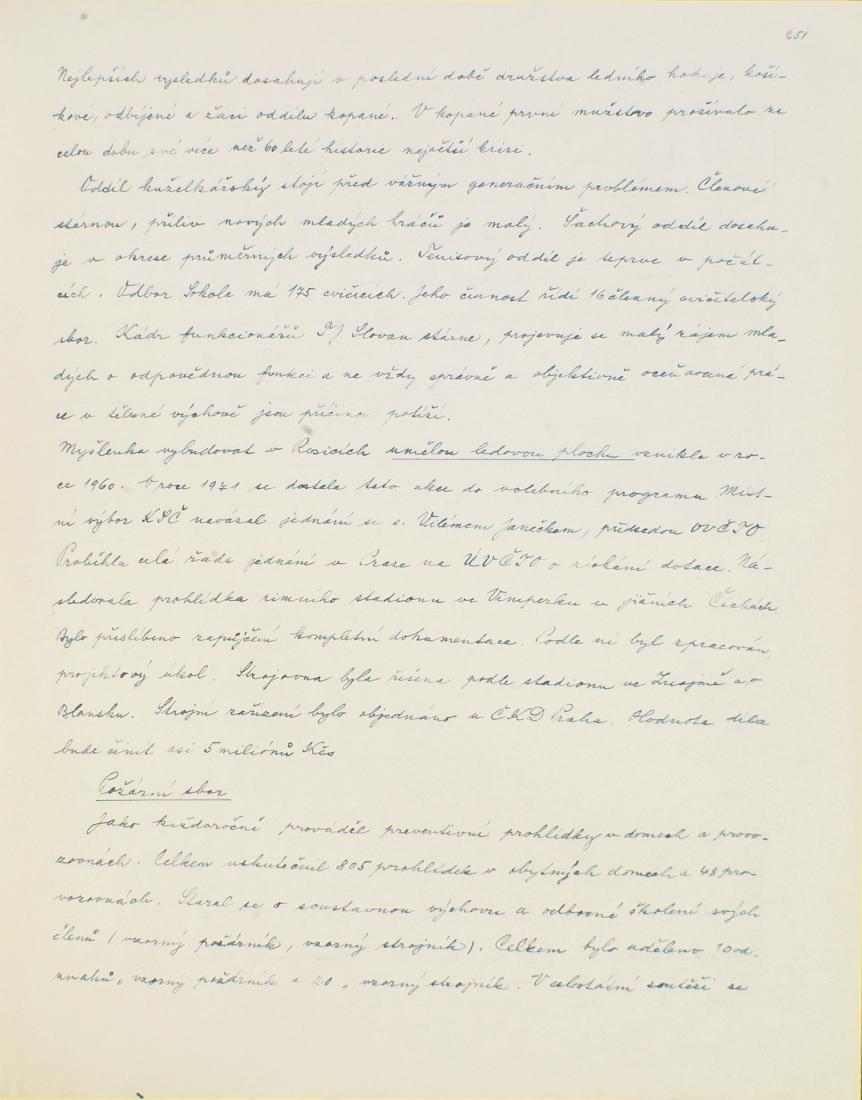 251
Nejlepších vysledků dosahují v poslední době družstva ledního hokeje, koší-
kové, odbíjené a žáci oddílu kopané. V kopané první mužstvo prožívalo ze
celou dobu své více než 60 leté historie největší krizi.
Oddíl kuželkářský stojí před vážným generačním problémem. Členové
stárnou, příliv nových mladých hráčů je malý. Šachový oddíl dosahu-
je v okrese průměrných výsledků. Tenisový oddíl je teprve v počát-
cích. Odbor Sokola má 175 cvičících. Jeho činnost řídí 16 členný cvičitelský
sbor. Kádr funkcionářů TJ Slovan stárne, projevuje se malý zájem mla-
dých o odpovědnou funkci a ne vždy správně a objektivně oceňovaná prá-
ce v tělesné výchově jsou příčinou potíží.
Myšlenka vybudovat v Rosicích umělou ledovou plochu vznikla v ro-
ce 1960. V roce 1971 se dostala tato akce do volebního programu. Míst-
ní výbor KSČ navázal jednání se s. Vilémem Janečkem, předsedou OVČTO.
Proběhla celá řada jednání v Praze na ÚVČTO o získání dotace. Ná-
sledovala prohlídka zimního stadionu ve Vimperku v jižních Čechách.
Bylo přislíbeno zapůjčení kompletní dokumentace. Podle ní byl zpracován
projektový úkol. Strojovna byla řešena podle stadionu ve Znojmě a v
Blansku. Strojní zařízení bylo objednáno u ČKD Praha. Hodnota díla
bude činit asi 5 miliónů Kčs
Požární sbor
Jako každoročně prováděl preventivní prohlídky v domech a provo-
zovnách. Celkem uskutečnil 805 prohlídek v obytných domech a 48 pro-
vozovnách. Staral se o soustavnou výchovu a odborné školení svých
členů (vzorný požárník, vzorný strojník). Celkem bylo uděleno 10 od-
znaků „ vzorný požárník a 20 „ vzorný strojník. V celostátní soutěži se